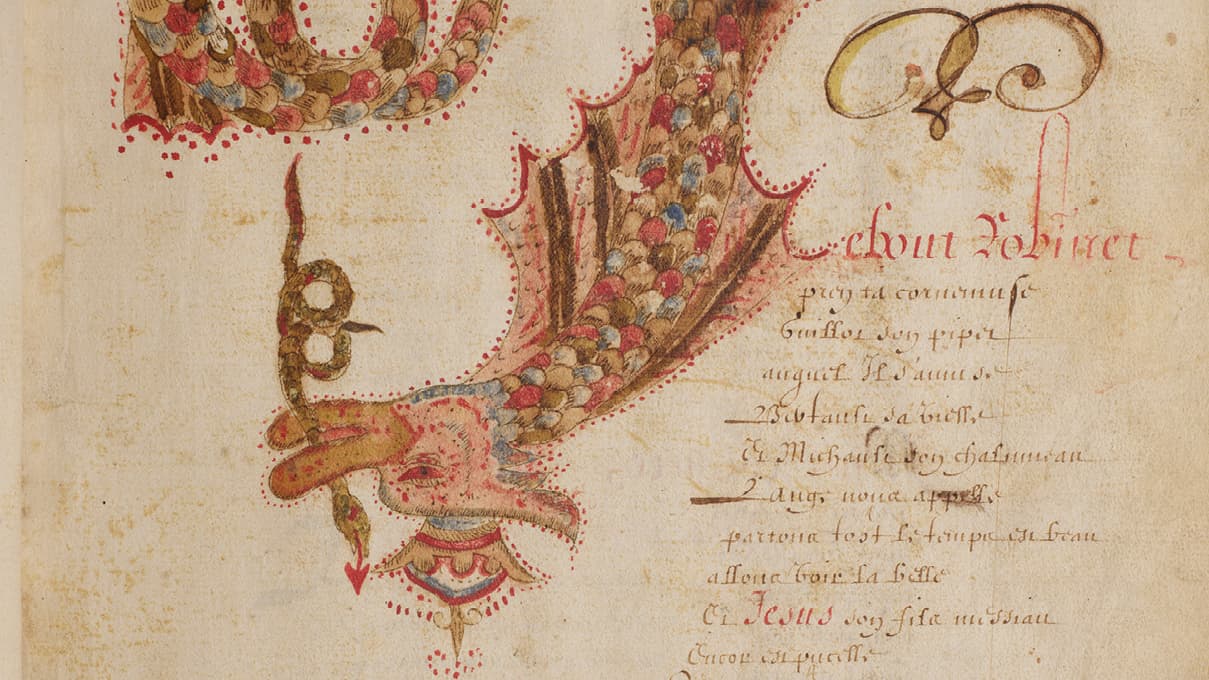 ebout Robinet
pren ta cornemuse
Guillot son piper
auquel Il s'amuse
Bertault sa vielle
Et Michault son chalumeau
L'ange nous appelle
partons tost le temps est beau
allons voir la belle
Et Jesus son filz messiau
Encor est pucelle